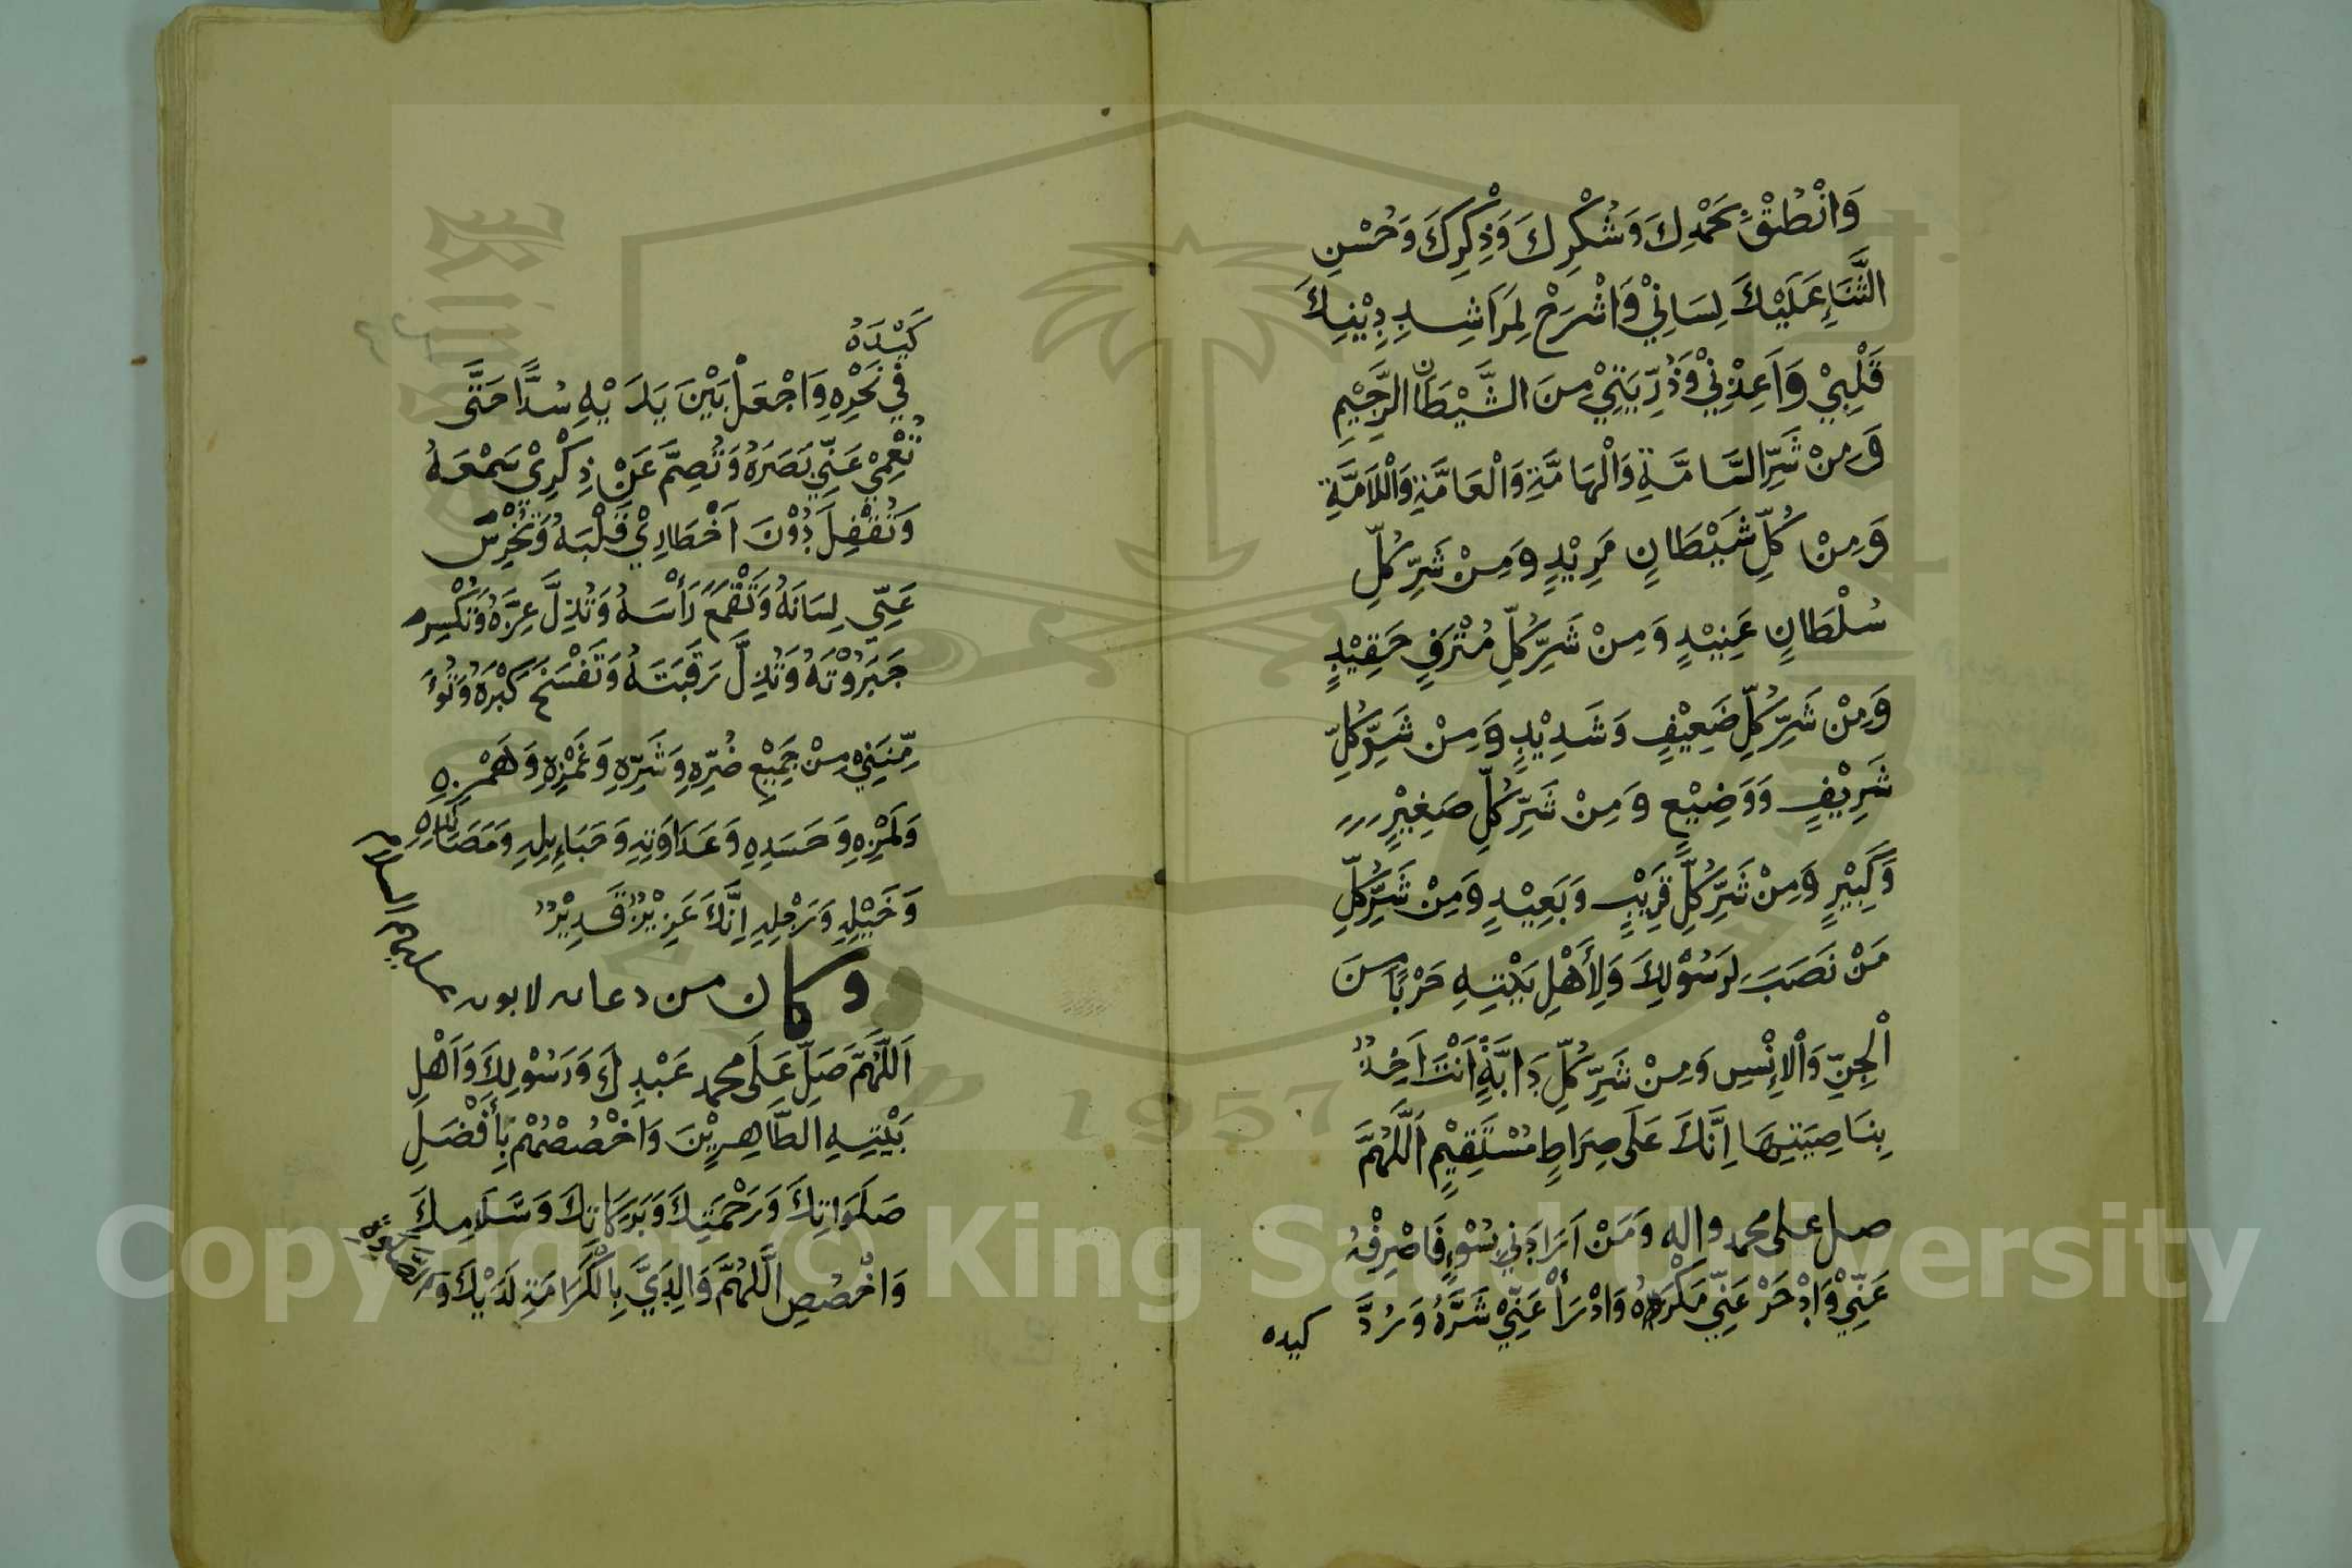 وَانْطُقْ بِحَمْدِكَ وَشُكْرِكَ وَذِكْرِكَ وَحُسْنِ
الثَّنَاءِ عَلَيْكَ لِسَانِيْ وَاشْرَحْ لِمَرَاشِدِ دِيْنِكَ
قَلْبِيْ وَاَعِذْنِيْ وَذُرِّيَتِيْ مِنَ الشَّيْطَانِ الرَّجِيْمِ
وَمِنْ شَرِّ السَّامَّةِ وَالْهَامَّةِ وَالْعَامَّةِ وَاللَّامَّةِ
وَمِنْ كُلِّ شَيْطَانٍ مَرِيْدٍ وَمِنْ شَرِّ كُلِّ
سُلْطَانٍ عَنِيْدٍ وَمِنْ شَرِّ كُلِّ مُتْرَفٍ حَقِيْدٍ
وَمِنْ شَرِّ كُلِّ ضَعِيْفٍ وَشَدِيْدٍ وَمِنْ شَرِّ كُلِّ
شَرِيْفٍ وَوَضِيْعٍ وَمِنْ شَرِّ كُلِّ صَغِيْرٍ
وَكَبِيْرٍ وَمِنْ شَرِّ كُلِّ قَرِيْبٍ وَبَعِيْدٍ وَمِنْ شَرِّ كُلِّ
مَنْ نَصَبَ لِرَسُوْلِكَ وَلِأَهْلِ بَيْتِهِ حَرْبًا مِنَ
الْجِنِّ وَالْاِنْسِ وَمِنْ شَرِّ كُلِّ دَابَّةٍ اَنْتَ اَخِذٌ
بِنَاصِيَتِهَا اِنَّكَ عَلَى صِرَاطٍ مُسْتَقِيْمٍ اَللَّهُمَّ
صل على محمد واله وَمَنْ اَرَادَنِيْ بِسُوْءٍ فَاصْرِفْهُ
عَنِّيْ وَادْحَرْ عَنِّيْ مَكْرَهُ وَادْرَأْ عَنِّيْ شَرَّهُ وَرُدَّ
كيده
كَيْدَهُ
فِيْ نَحْرِهِ وَاجْعَلْ بَيْنَ يَدَيْهِ سُدًّا حَتَّى
تُعْمِيَ عَنِّيْ بَصَرَهُ وَتُصِمَّ عَنْ ذِكْرِيْ سَمْعَهُ
وَتُقْفِلَ دُوْنَ اَخْطَارِيْ قَلْبَهُ وَتُخْرِسَ
عَنِّيْ لِسَانَهُ وَتَقْمَعَ رَأْسَهُ وَتُذِلَّ عِزَّهُ وَتَكْسِرَ
جَبَرُوْتَهُ وَتُذِلَّ رَقَبَتَهُ وَتَفْسَخَ كِبْرَهُ وَتُؤْ
مِّنَنِيْ مِنْ جَمِيْعِ ضُرِّهِ وَشَرِّهِ وَغَمْزِهِ وَهَمْزِهِ
وَلَمْزِهِ وَحَسَدِهِ وَعَدَاوَتِهِ وَحَبَائِلِهِ وَمَصَائِدِهِ
وَخَيْلِهِ وَرَجْلِهِ اِنَّكَ عَزِيْزٌ قَدِيْرٌ
وكان من دعائه لابويه عليهما السلام
اَللَّهُمَّ صَلِّ عَلَى محمد عَبْدِكَ وَرَسُوْلِكَ وَاَهْلِ
بَيْتِهِ الطَّاهِرِيْنَ وَاخْصُصْهُمْ بِأَفْضَلِ
صَلَوَاتِكَ وَرَحْمَتِكَ وَبَرَكَاتِكَ وَسَلَامِكَ
وَاخْصُصِ اللَّهُمَّ وَالِدَيَّ بِالْكَرَامَةِ لَدَيْكَ
Copyright © King Saud University
1957